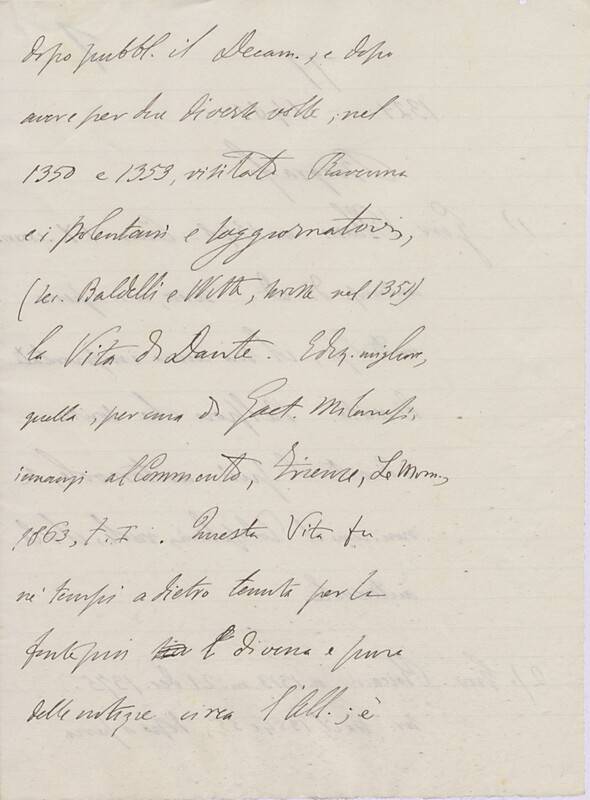 dopo pubbl. il Decam.; e dopo
avere per due diverse volte, nel
1350 e 1353, visitato Ravenna
e i Polentani e soggiornatovi,
(sec. Baldelli e Witte, scrisse nel 1351)
la Vita di Dante. Ediz. migliore,
quella, per cura di Gaet. Milanesi,
innanzi al Commento, Firenze, Le Monn.,
1863, t. I. Questa Vita fu
ne' tempi addietro tenuta per la
fonte più e pura
delle notizie circa l'All.; è